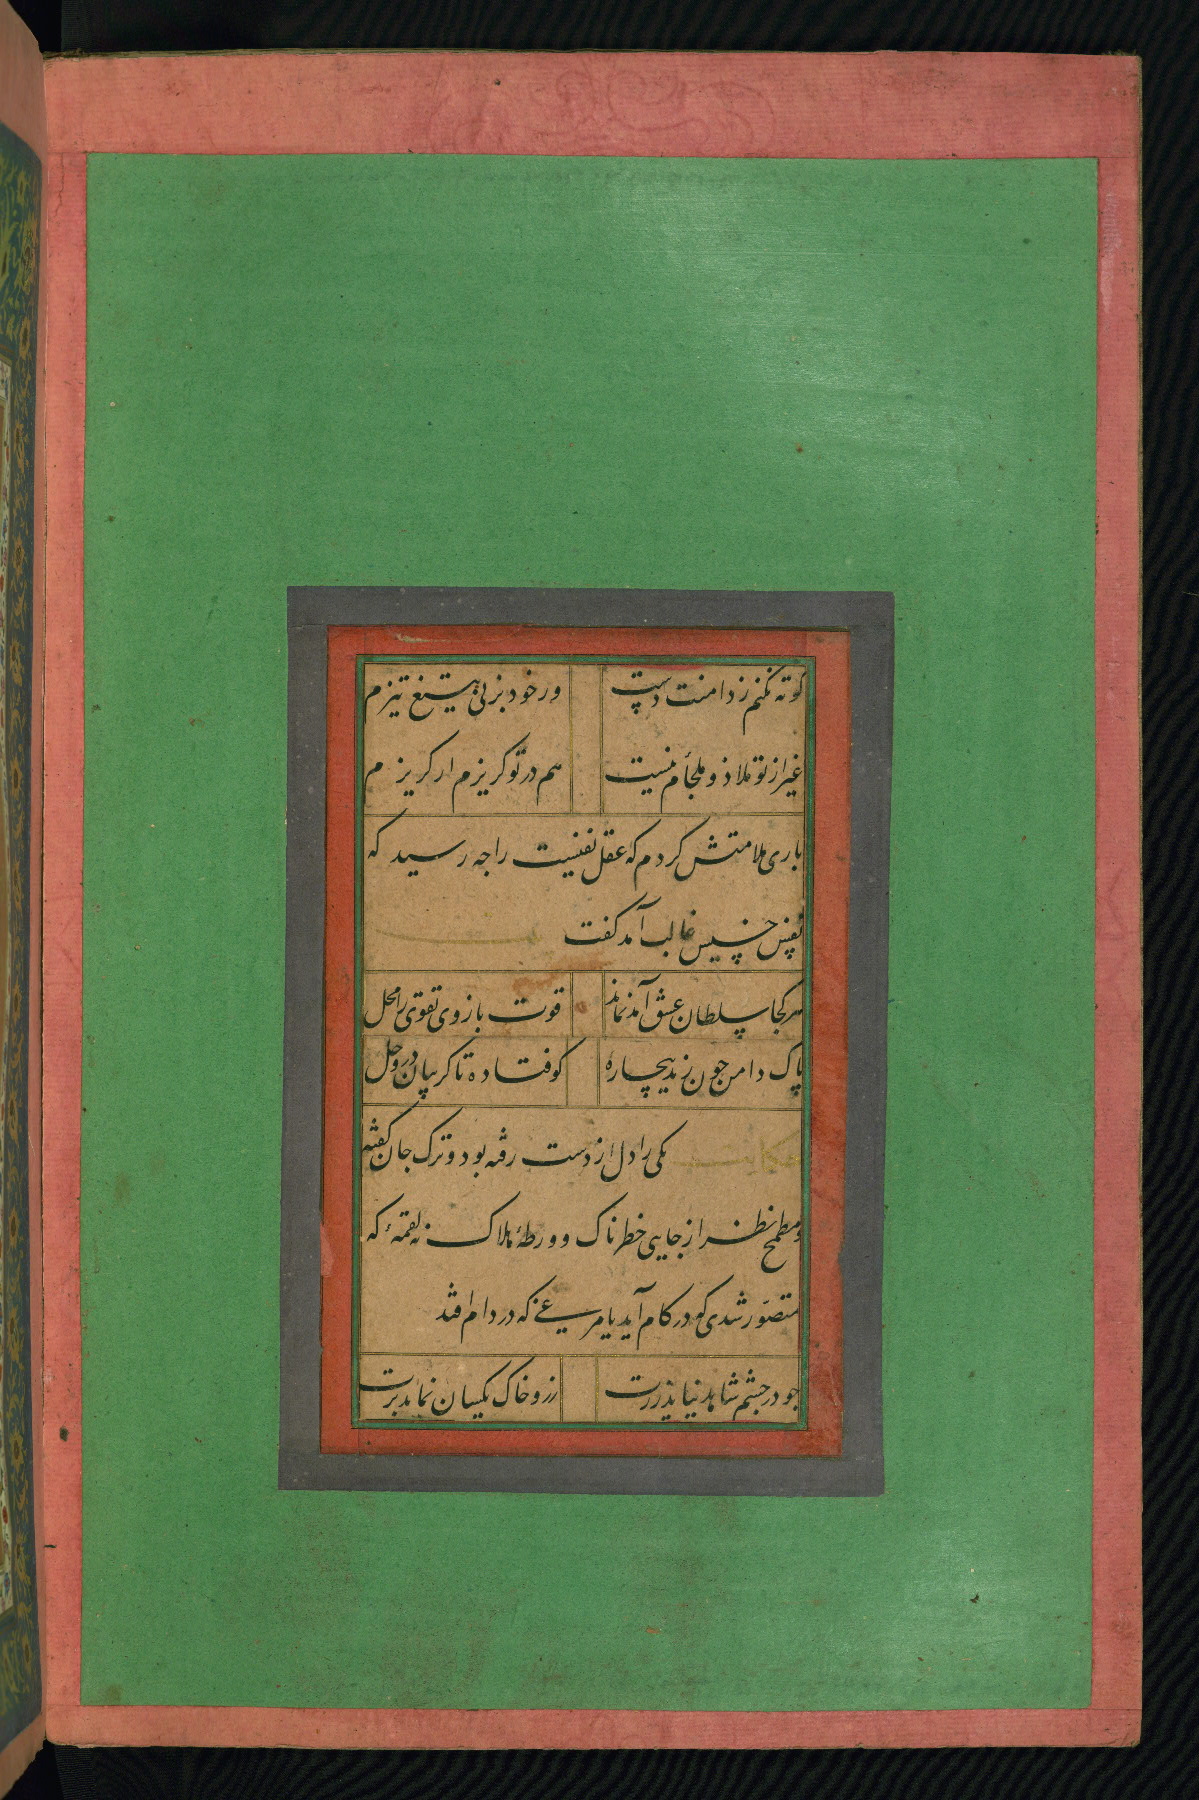 کوته نکنم ز دامنت دست ور خود بزنی به تیغ تیزم
غیر از تو ملاذ و ملجأم نیست هم در تو کریزم ار کریزم
باری ملامتش کردم که عقل نفیست را چه رسید که
نفس خسیس غالب آمد کفت
هر کجا سلطان عشق آمد نماند قوت بازوی تقوی را محل
پاک دامن چون زید بیچاره کو فتاده تا کریبان در وحل
حکایت یکی را دل از دست رفته بود و ترک جان کفته
و مطمح نظر از جایی خطرناک و ورطهٔ هلاک نه لقمهٔ که
متصوّر شدی کو در کام آید یا مرغی که در دام افتد
جو در جشم شاهد نیاید زرت زر و خاک یکسان نماید برت